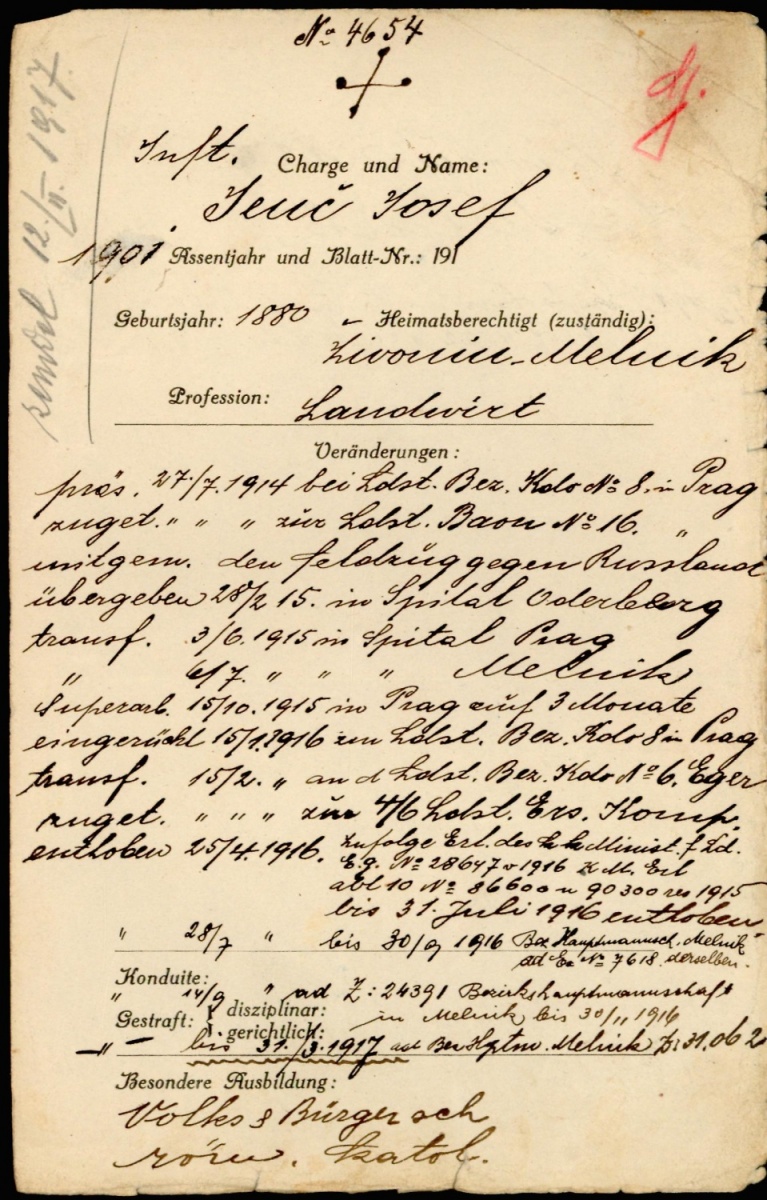 No 4654
Inft.
Charge und Name:
Jenč Josef
1901 Assentjahr und Blatt-Nr.: 191
Geburtsjahr: 1880 Heimatsberechtigt (zuständig):
Živonin-Melnik
Profession: Landwirt
Veränderungen:
präs. 27./7. 1914 bei Ldst. Bez. Kdo No 8. in Prag
zuget. " " " zur Ldst. Baon No 16. "
mitgem. den Feldzug gegen Russland
übergeben 28/2 15. in Spital Oderberg
transf. 3/6. 1915 in Spital Prag
" 6/7. " " " Melnik
Superarb. 15/10. 1915 in Prag auf 3 Monate
eingerückt 15/1. 1916 zum Ldst. Bez. Kdo 8 in Prag
transf. 15/2. " an d Ldst. Bez. Kdo No 6. Eger
zuget. " " " zur 4/6 Ldst. Ers. Komp.
enthoben 25/4. 1916. zufolge Erl. des k k Minist. f. Ld.
No 28647 v 1916 K. M. Erl
abt 10 No 86600 u 90300 res 1915
bis 31. Juli 1916 enthoben
" 28/7 " bis 30/9 1916 Bez Hauptmannsch. Melnik
ad No 7618. derselben.
Konduite:
" 14/9 " ad Z: 24391 Bezirkshauptmannschaft
Gestraft: { disziplinar: in Melnik bis 30/11 1916
gerichtlich:
-"- bis 31./3. 1917 ad Bez Hptm. Melnik Z: 31.062
Besondere Ausbildung:
Volks & Bürgersch
röm. katol.
12./II. 1917